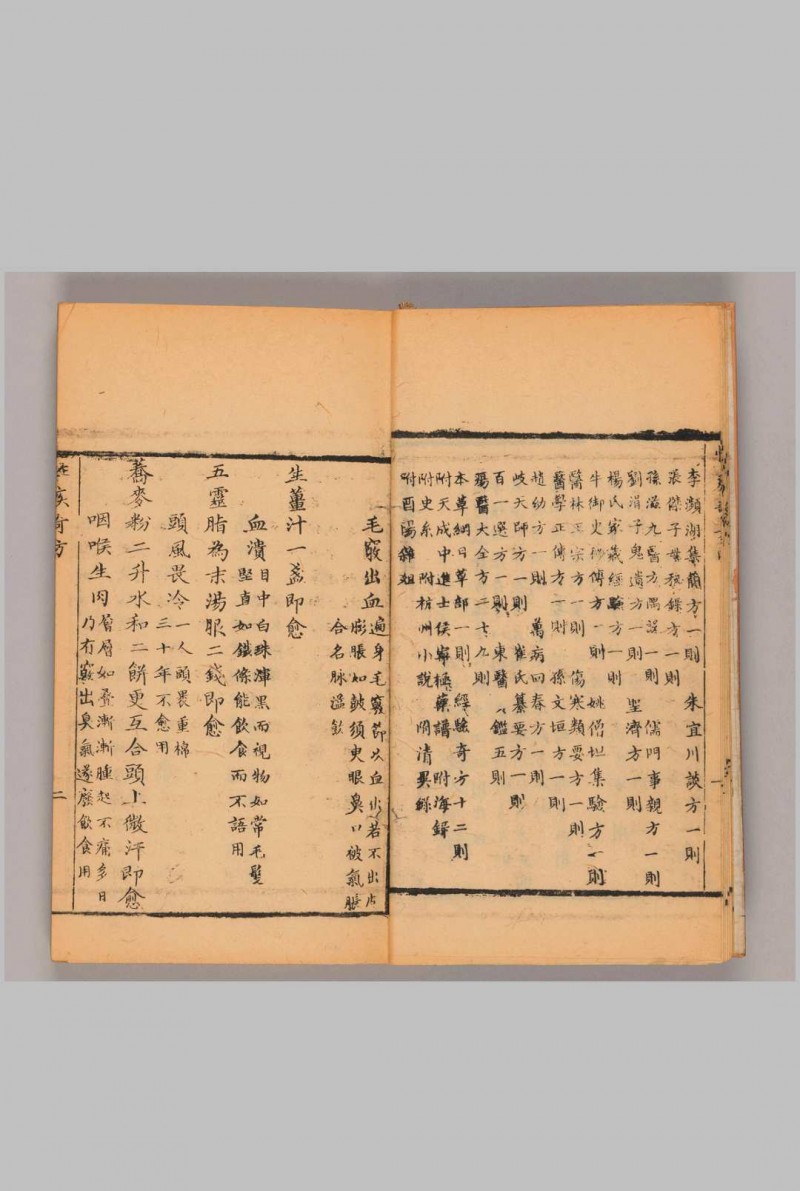 李瀕湖集蘭方一則　朱宜川談方一則
張傑子母秘錄方一則
孫滋九醫方隅設一則　儒門事親方一則
劉涓子鬼遺方一則　聖濟方一則
楊氏家藏經驗方一則
牛御史秘傳方一則　姚僧坦集驗方一則
醫林正宗方一則　傷寒類要方一則
醫學正傳方一則　孫文垣方一則
植幼方一則　萬病回春方一則
岐天師方一則　崔氏纂要方一則
百一選方一則　東醫鑑五則
瘍醫大全方二十九則
本草綱目草部一則　經驗奇方十二則
附天成中進士侯寧極藥譜　附海錄
附史系　附杭州小說　附清異錄
附酉陽雜俎
一
毛竅出血　遍身毛竅節次血出若不出皮
膨脹如皷須臾眼鼻口被氣脹
合名脉溢飲
生薑汁一盞即愈
血潰　目中白珠渾黑而視物如常毛髮
堅直如鐵條能飲食而不語用
五靈脂為末湯服二錢即愈
頭風畏冷　一人頭畏重棉
三十年不愈用
蕎麥粉二升水和二餅更互合頭上微汗即愈
咽喉生肉　層層如疊漸漸腫起不痛多日
乃有竅出臭氣遂廢飲食用
疾奇方
二